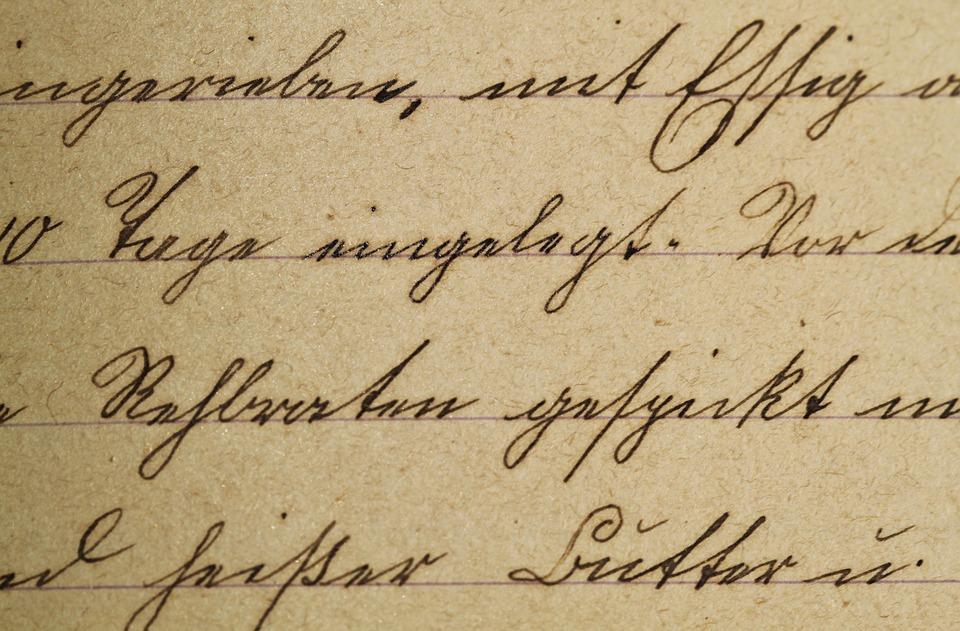 ingerieben, mit Essig
10 Tage eingelegt. Vor de
Rehbraten gespickt
nd heißer Butter u.